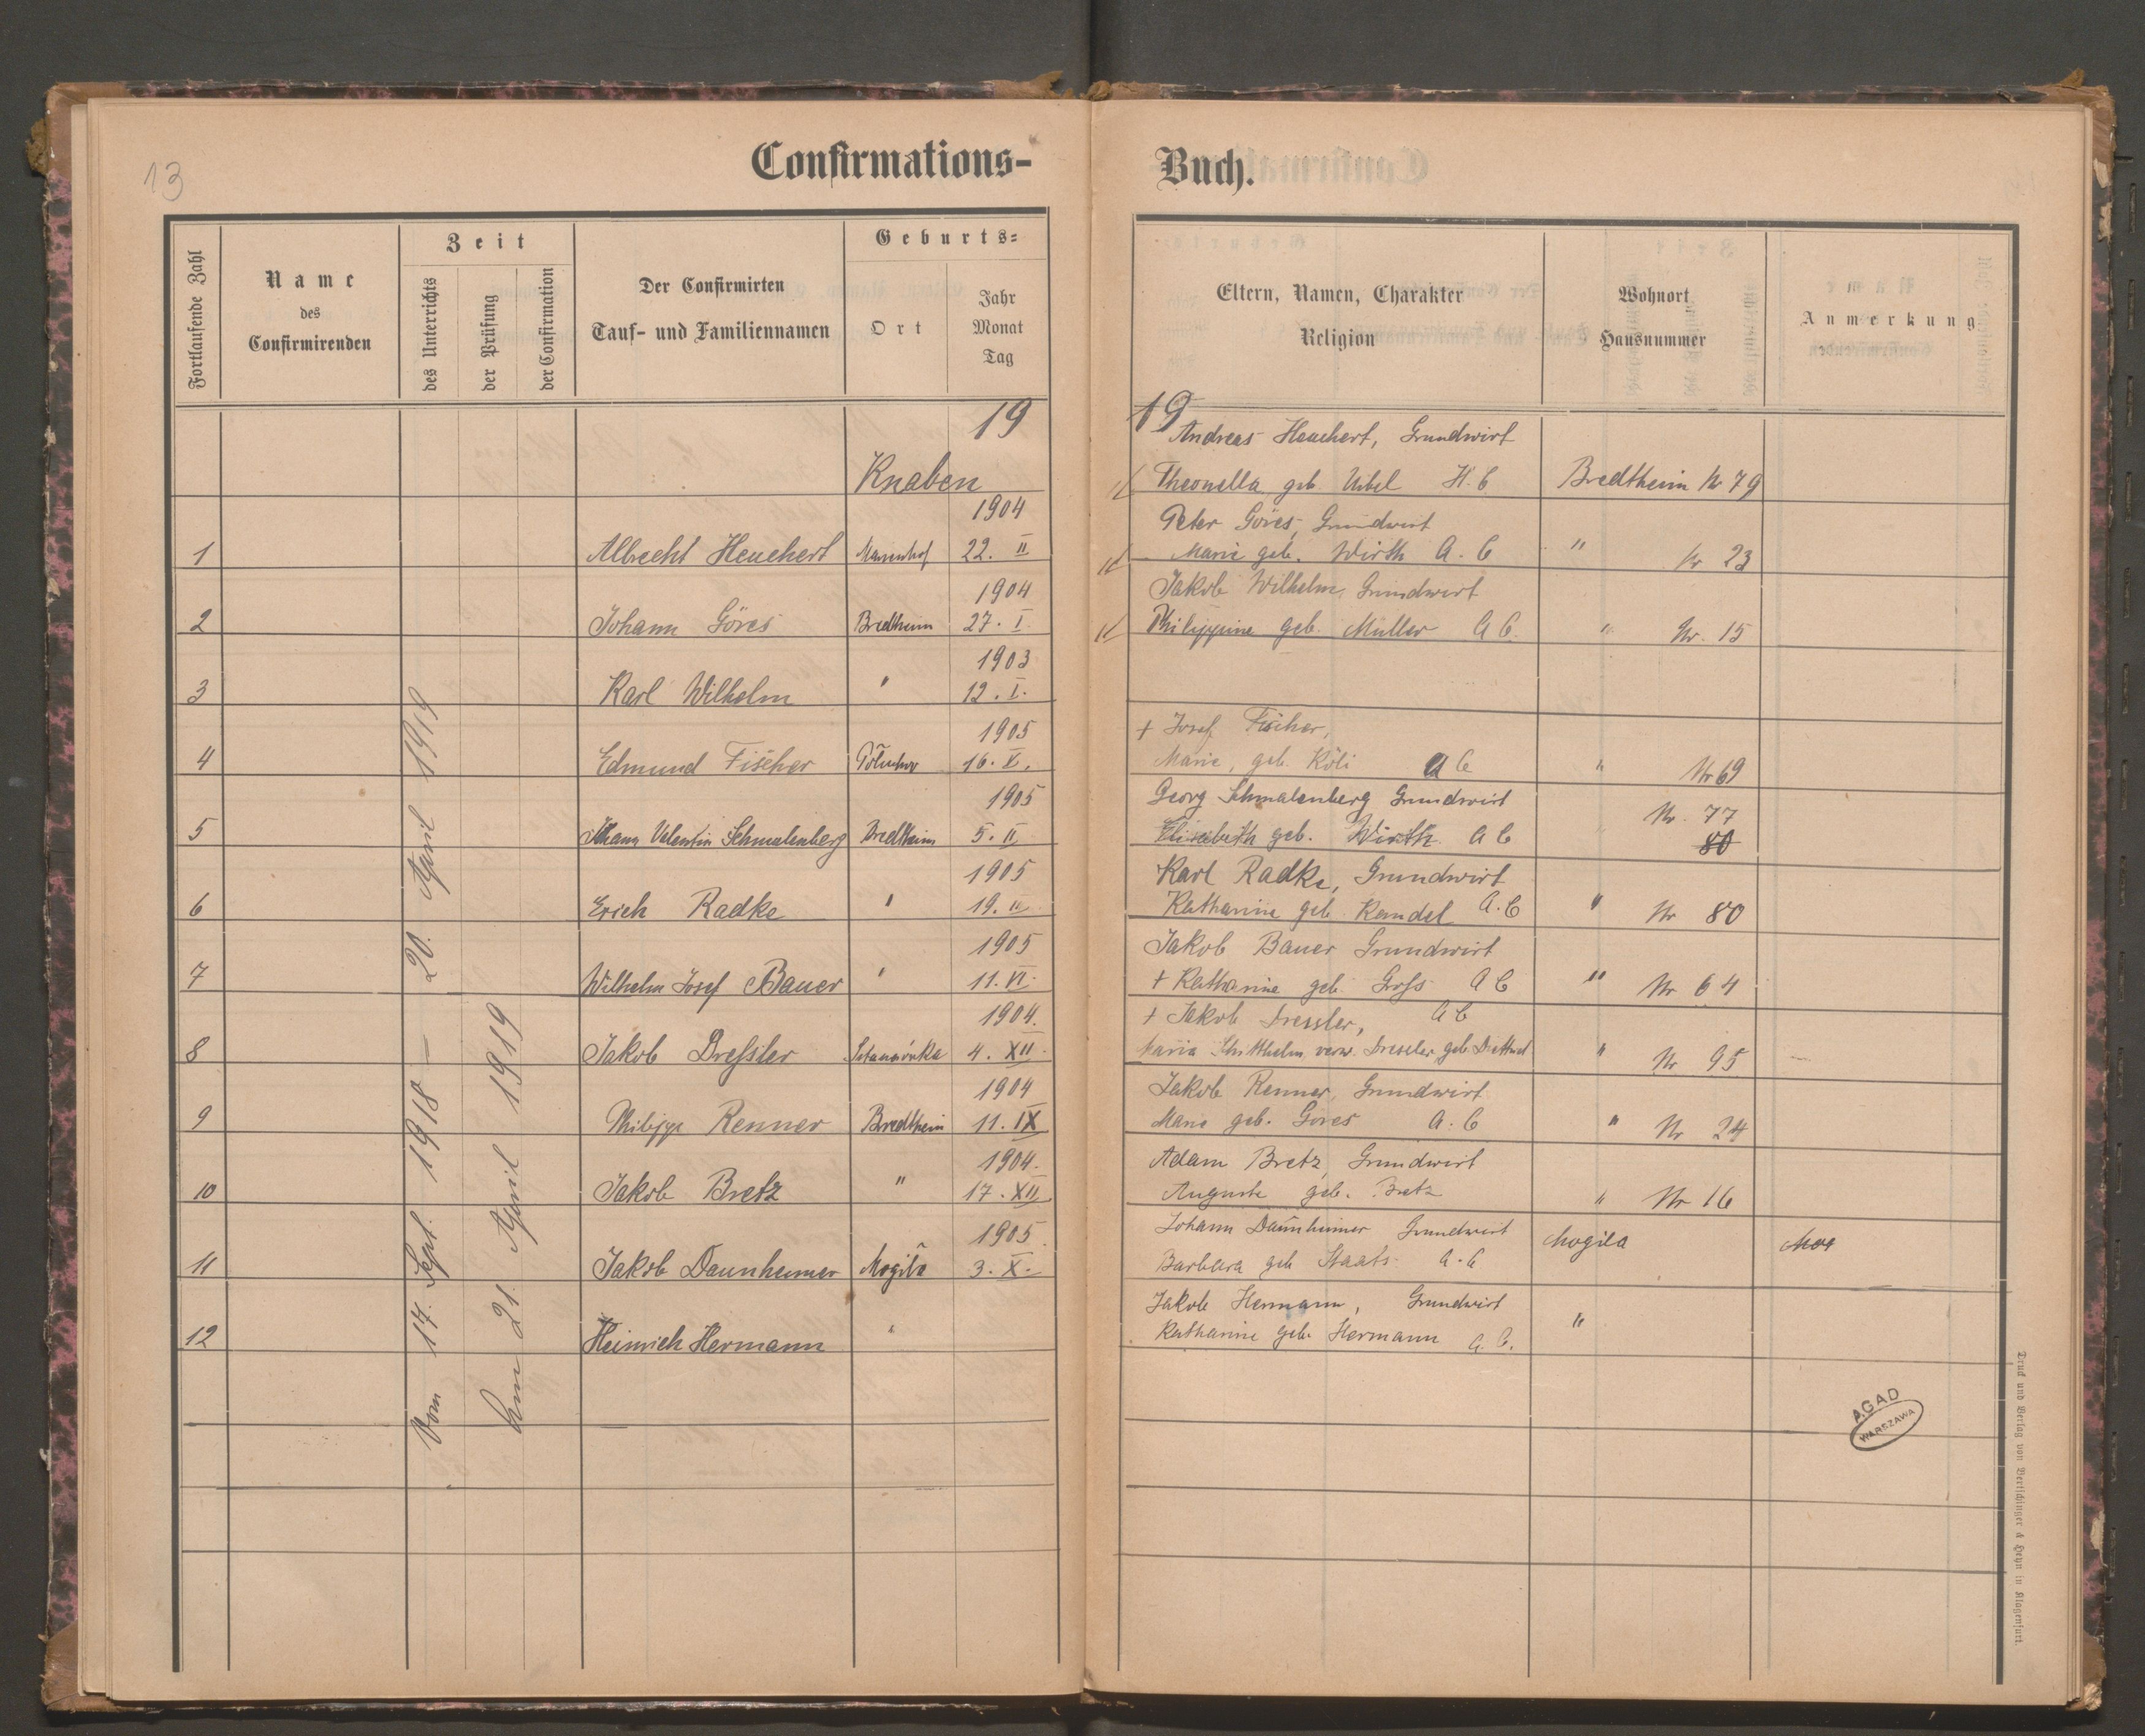 13
Confirmations-
Fortlaufende Zahl
Name
des
Confirmirenden
Zeit
des Unterrichts
der Prüfung
der Confirmation
Der Confirmirten
Tauf- und Familiennamen
Geburts-
Ort
Jahr
Monat
Tag
19
Knaben
Vom 17. Sept. 1918 – 20. April 1919
21. April 1919
1904
1 Albrecht Heuchert 22. II
1904
2 Johann Göres Bredtheim 27. I.
1903
3 Karl Wilhelm " 12. I.
1905
4 Edmund Fischer 16. X.
1905
5 Johann Valentin Schmalenberg Bredtheim 5. II
1905
6 Erich Radke " 19. III
1905
7 Wilhelm Josef Bauer " 11. VI.
1904.
8 Jakob Dreſsler 4. XII.
1904
9 Philipp Renner Bredtheim 11. IX
1904.
10 Jakob Bretz " 17. XII
1905.
11 Jakob Daunheimer Mogiła 3. X.
12 Heinrich Hermann "
Buch.
Eltern, Namen, Charakter
Religion
Wohnort
Hausnummer
Anmerkung
19
Andreas Heuchert, Grundwirt
Theonella geb. Uibel H. C Bredtheim Nr 79
Peter Göres, Grundwirt
Marie geb. Wirth A. C " Nr 23
Jakob Wilhelm, Grundwirt
Philippine geb. Müller A C. " Nr. 15
+ Josef Fischer,
Marie, geb. Köli A C " Nr 69
Georg Schmalenberg Grundwirt
Nr. 77
Elisabeth geb. Wirth A C " 80
Karl Radke, Grundwirt
Katharina geb. Kandel A. C " Nr 80
Jakob Bauer Grundwirt
+ Katharina geb. Groſs A C " Nr 64
+ Jakob Dressler, A C
Maria verw. Dressler geb. " Nr 95
Jakob Renner, Grundwirt
Marie geb. Göres A. C " Nr 24
Adam Bretz, Grundwirt
Auguste geb. Bretz " Nr 16
Johann Daunheimer Grundwirt Mogiła Mog
Barbara geb Staats A. C
Jakob Hermann, Grundwirt
Katharina geb. Hermann A. C. "
AGAD
WARSZAWA
Druck und Verlag von Bertschinger & Heyn in Klagenfurt.